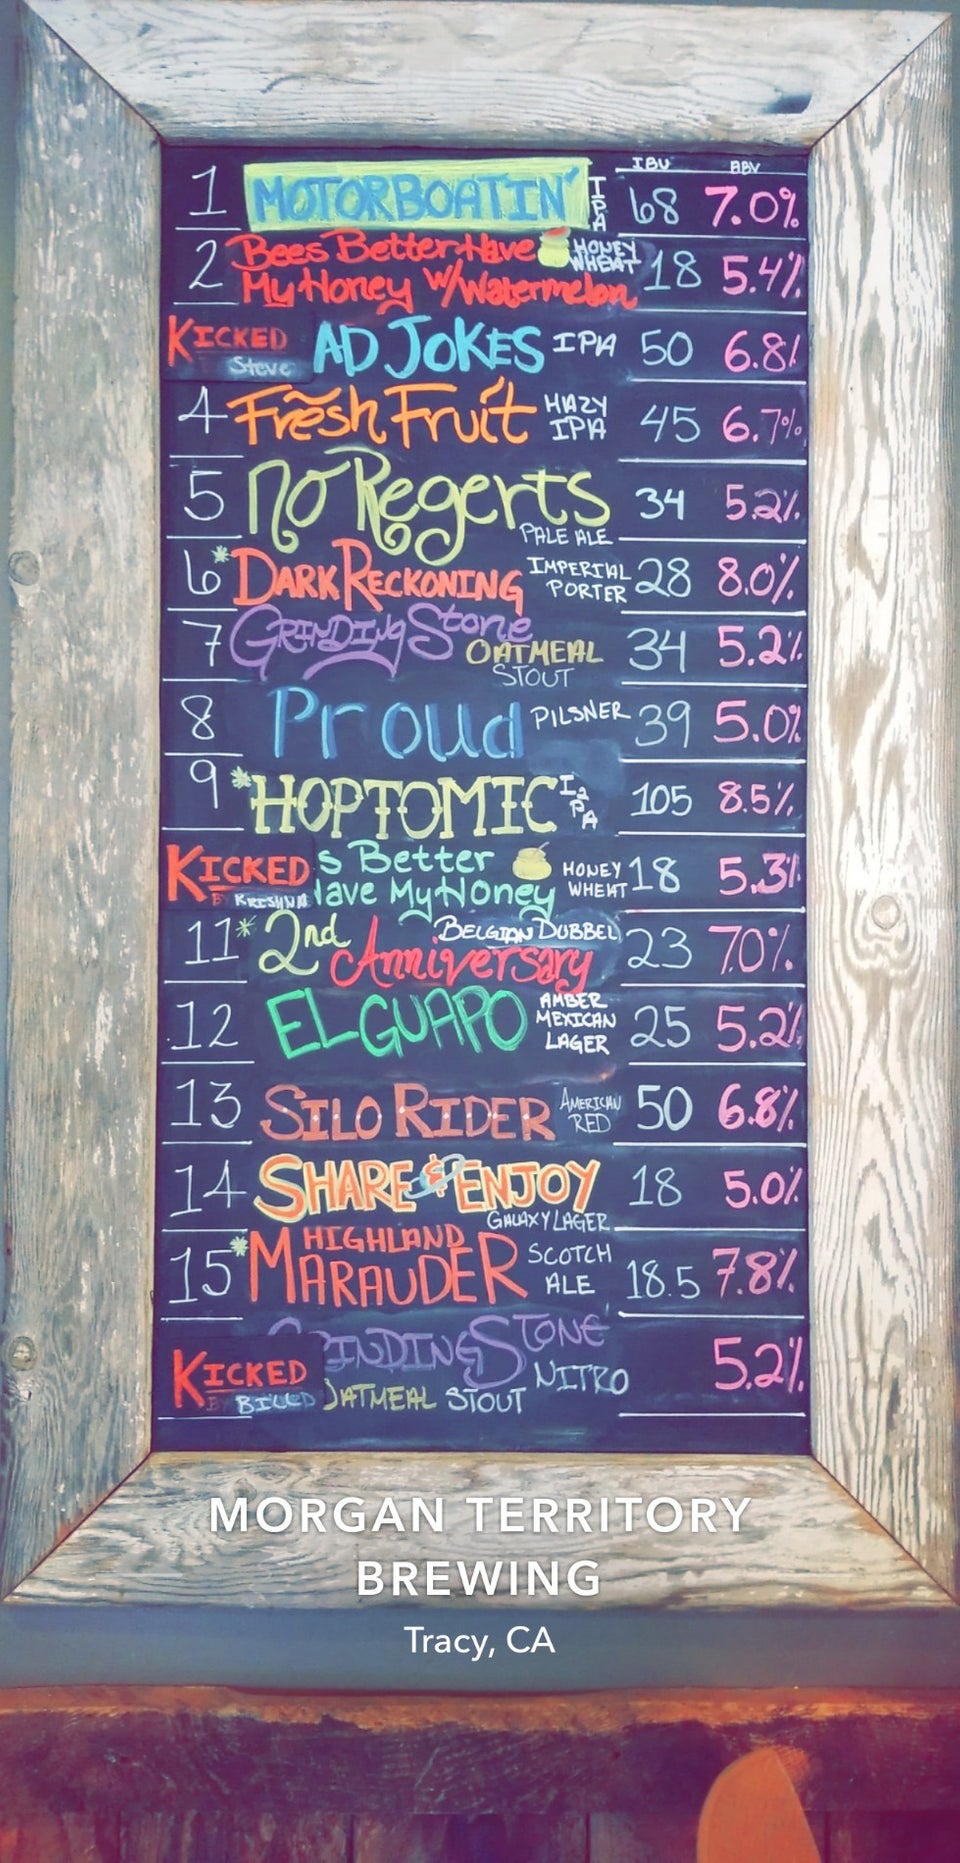 IBU ABV
1 MOTORBOATIN' IPA 68 7.0%
2 Bees Better Have HONEY WHEAT 18 5.4%
My Honey W/Watermelon
KICKED AD JOKES IPA 50 6.8%
Steve
4 Fresh Fruit HAZY IPA 45 6.7%
5 No Regerts 34 5.2%
PALE ALE
6* DARK RECKONING IMPERIAL PORTER 28 8.0%
7 GRINDING Stone 34 5.2%
OATMEAL
STOUT
8 Proud PILSNER 39 5.0%
9 *HOPTOMIC I2PA 105 8.5%
KICKED s Better HONEY WHEAT 18 5.3%
BY KRISHNA Have My Honey
11* 2nd BELGIAN DUBBEL 23 7.0%
Anniversary
12 EL GUAPO AMBER MEXICAN LAGER 25 5.2%
13 SILO RIDER AMERICAN RED 50 6.8%
14 SHARE & ENJOY 18 5.0%
GALAXY LAGER
15* HIGHLAND SCOTCH ALE 18.5 7.8%
MARAUDER
KICKED RINDING STONE NITRO 5.2%
BY OATMEAL STOUT
MORGAN TERRITORY
BREWING
Tracy, CA